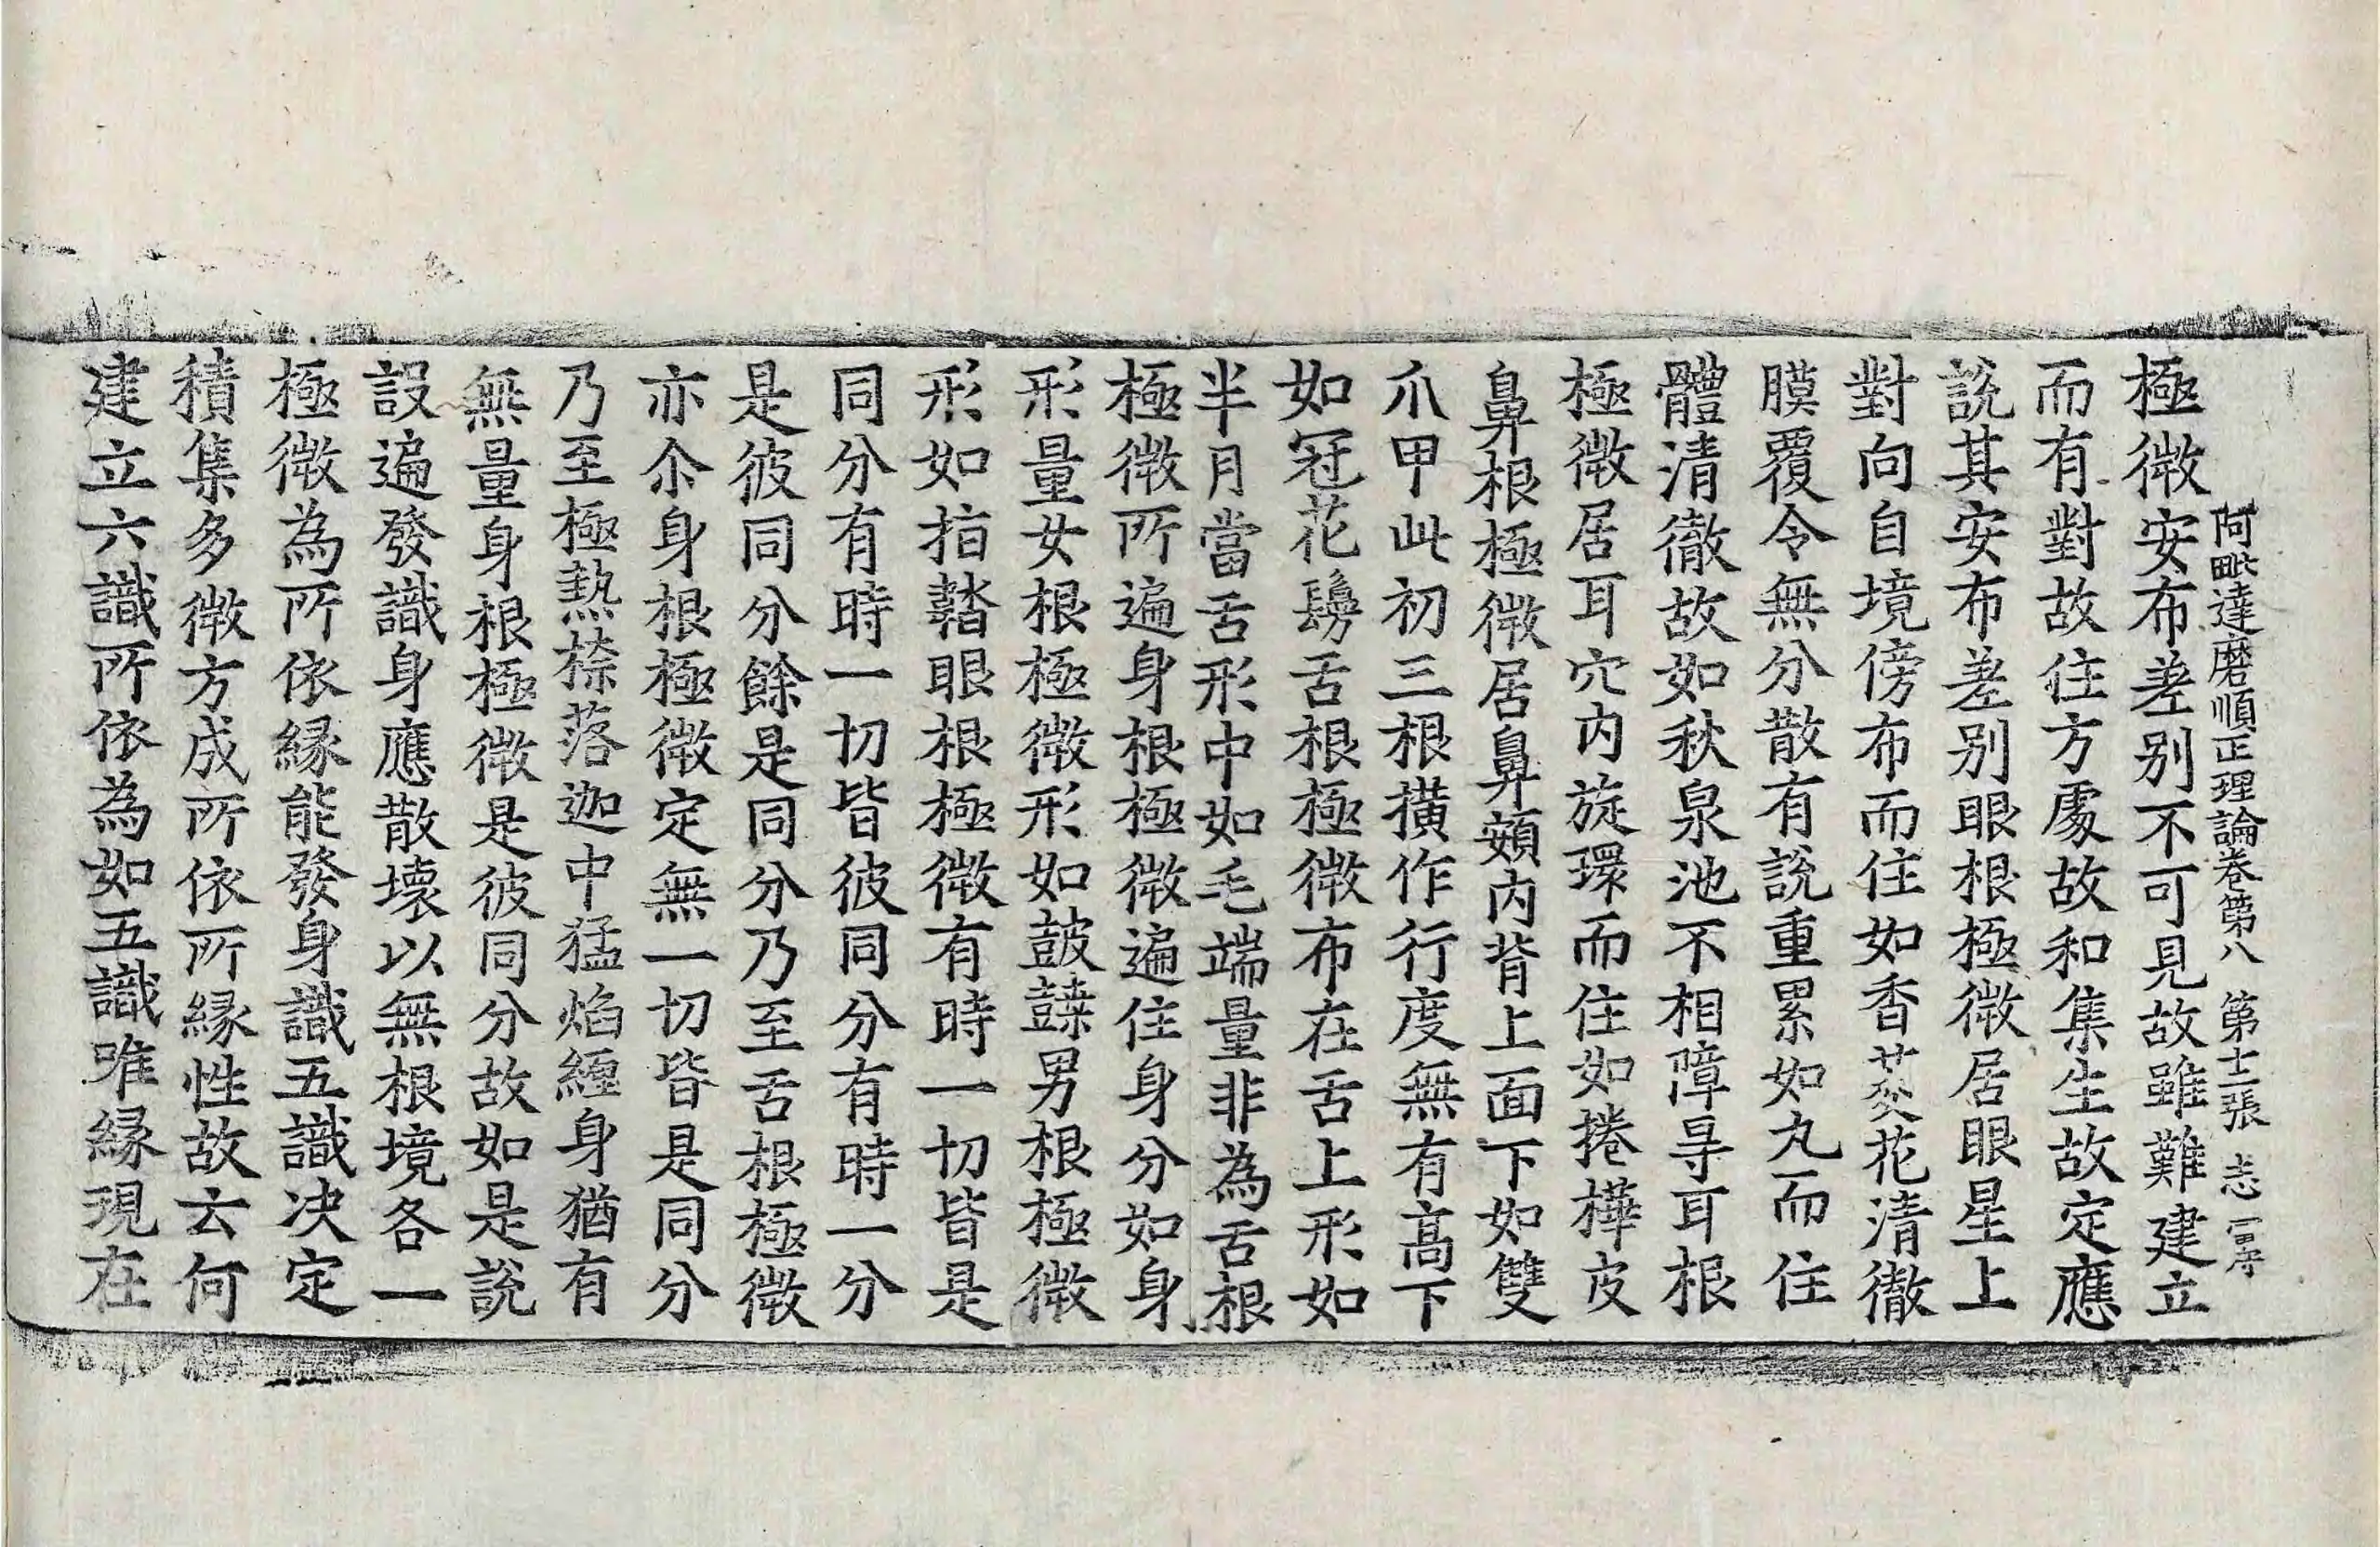 阿毗達磨順正理論卷第八　第十二張　志
極微安布差別不可見故雖難建立
而有對故住方處故和集生故定應
說其安布差別眼根極微居眼星上
對向自境傍布而住如香荾花清徹
膜覆令無分散有說重累如丸而住
體清徹故如秋泉池不相障㝵耳根
極微居耳穴内旋環而住如捲樺皮
鼻根極微居鼻頞内背上面下如雙
爪甲此初三根橫作行度無有高下
如冠花鬘舌根極微布在舌上形如
半月當舌形中如毛端量非為舌根
極微所遍身根極微遍住身分如身
形量女根極微形如鼓𪔣男根極微
形如指䪚眼根極微有時一切皆是
同分有時一切皆彼同分有時一分
是彼同分餘是同分乃至舌根極微
亦尒身根極微定無一切皆是同分
乃至極熱㮈落迦中猛焰纏身猶有
無量身根極微是彼同分故如是說
設遍發識身應散壞以無根境各一
極微為所依緣能發身識五識决定
積集多微方成所依所緣性故云何
建立六識所依為如五識唯緣現在